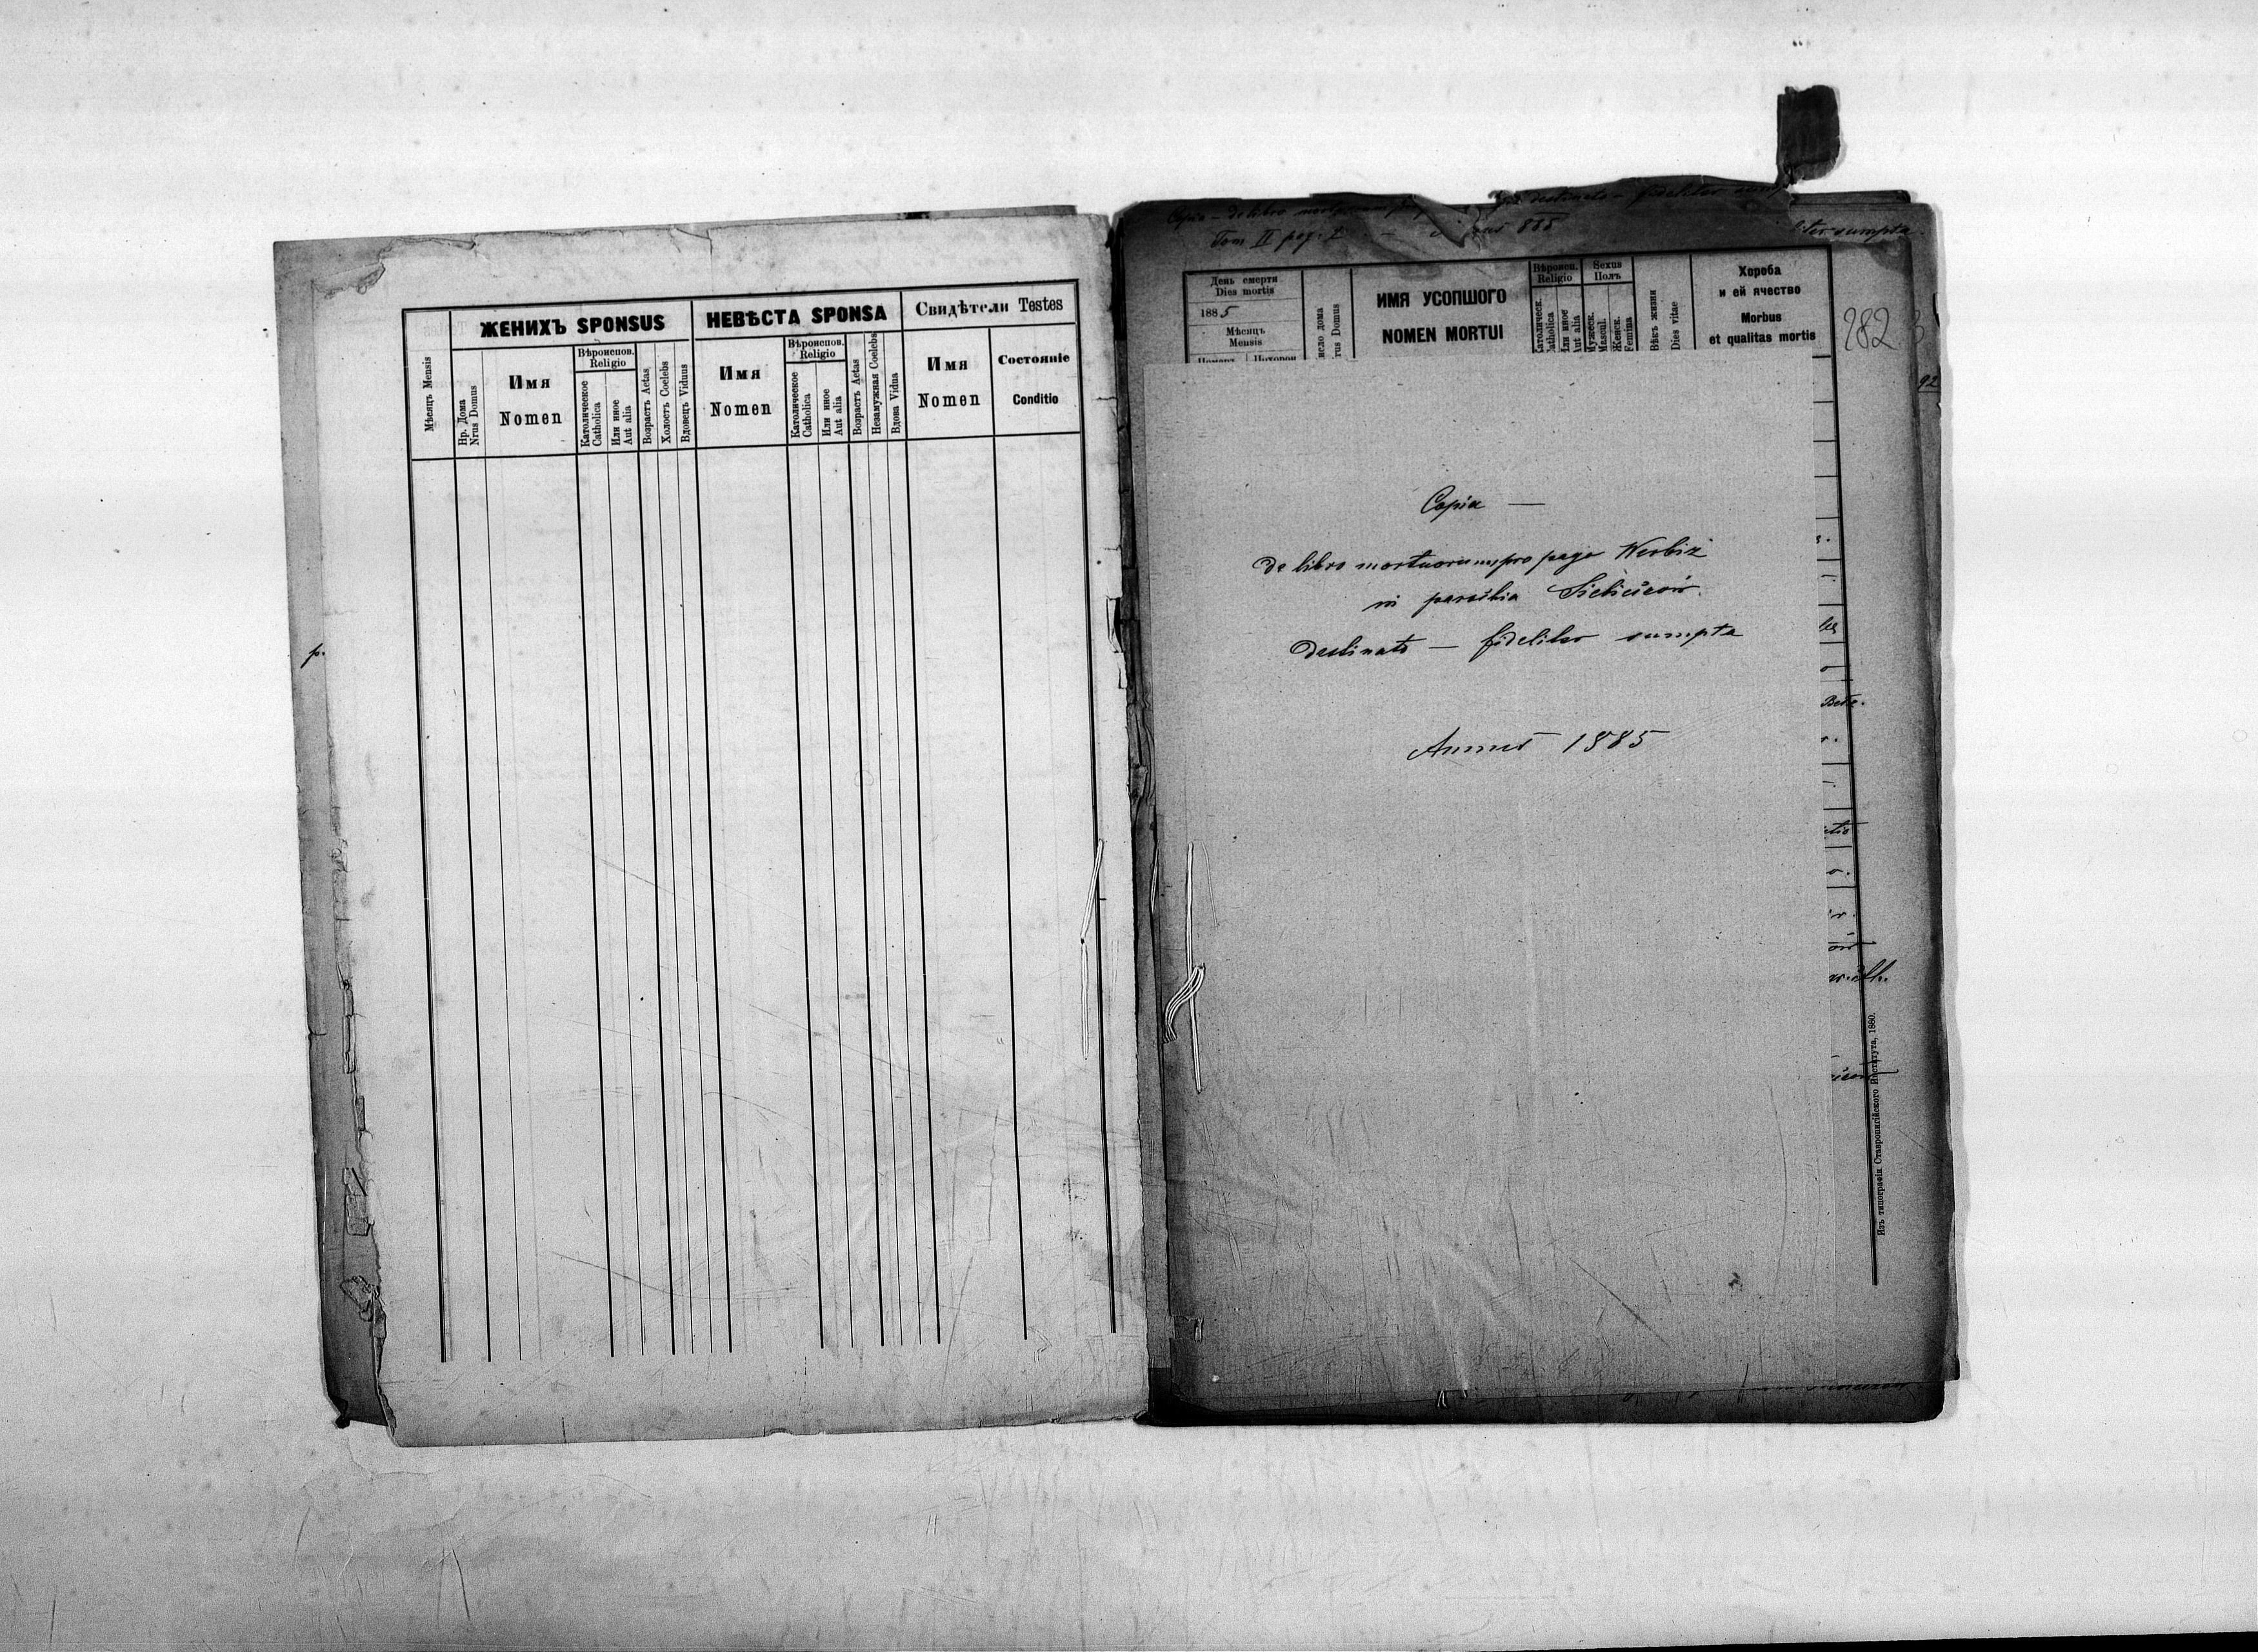 ЖЕНИХЪ SPONSUS
НЕВѢСТА SPONSA
Свидѣтели Testes
Мѣсяць Mensis
Нр. Дома
Nrus Domus
Имя
Nomen
Вѣроиспов.
Religio
Католическое
Catholica
Или иное
Aut alia
Возрастъ Aetas
Холостъ Coelebs
Вдовецъ Viduus
Имя
Nomen
Вѣроиспов.
Religio
Католическое
Catholica
Или иное
Aut alia
Возрастъ Aetas
Незамужная Coelebs
Вдова Vidua
Имя
Nomen
Состояніе
Conditio
p.
Copia - de libro
destinato - fideliter
Tom II pag. 2
liter sumpta
День смерти
Dies mortis
1885
Мѣсяцъ
Mensis
ИМЯ УСОПШОГО
NOMEN MORTUI
Вѣроисп.
Religio
Или иное
Aut alia
Sexus
Полъ
Mascul.
Женск.
Femina
Вѣкъ жизни
Dies vitae
Хороба
и ей ячество
Morbus
et qualitas mortis
282
92
Copia —
De libro mortuorum pro pago Werbiz
in parochia
destinato — fideliter sumpta
Annus 1885
Изъ типографіи Ставропигійского Института, 1880.